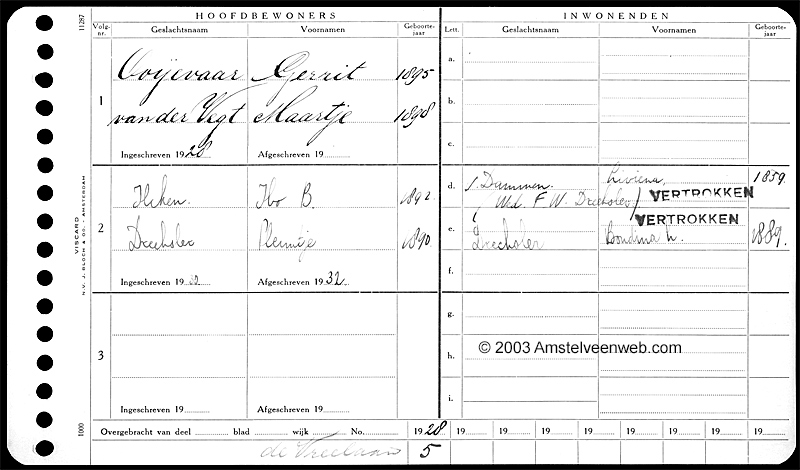 HOOFDBEWONERS INWONENDEN
Volg-nr. Geslachtsnaam Voornamen Geboorte-jaar Lett. Geslachtsnaam Voornamen Geboorte-jaar
11287
1
Ooijevaar Gerrit 1895
van der Vegt Maartje 1898
Ingeschreven 1928 Afgeschreven 19
a.
b.
c.
2
Ilsken Ibo B. 1892
Drechsler Pleuntje 1890
Ingeschreven 19 32 Afgeschreven 19 32
d. Dammen. Liviena. 1859.
(Wed. F. W. Drechsler)
VERTROKKEN
VERTROKKEN
e. Drechsler Bondina h. 1889.
f.
3
Ingeschreven 19 Afgeschreven 19
g.
h.
i.
© 2003 Amstelveenweb.com
VISCARD
N.V. J. BLOCH & CO. / AMSTERDAM
1000
Overgebracht van deel blad wijk No. 1928 19 19 19 19 19 19 19 19
de Vreelaan 5